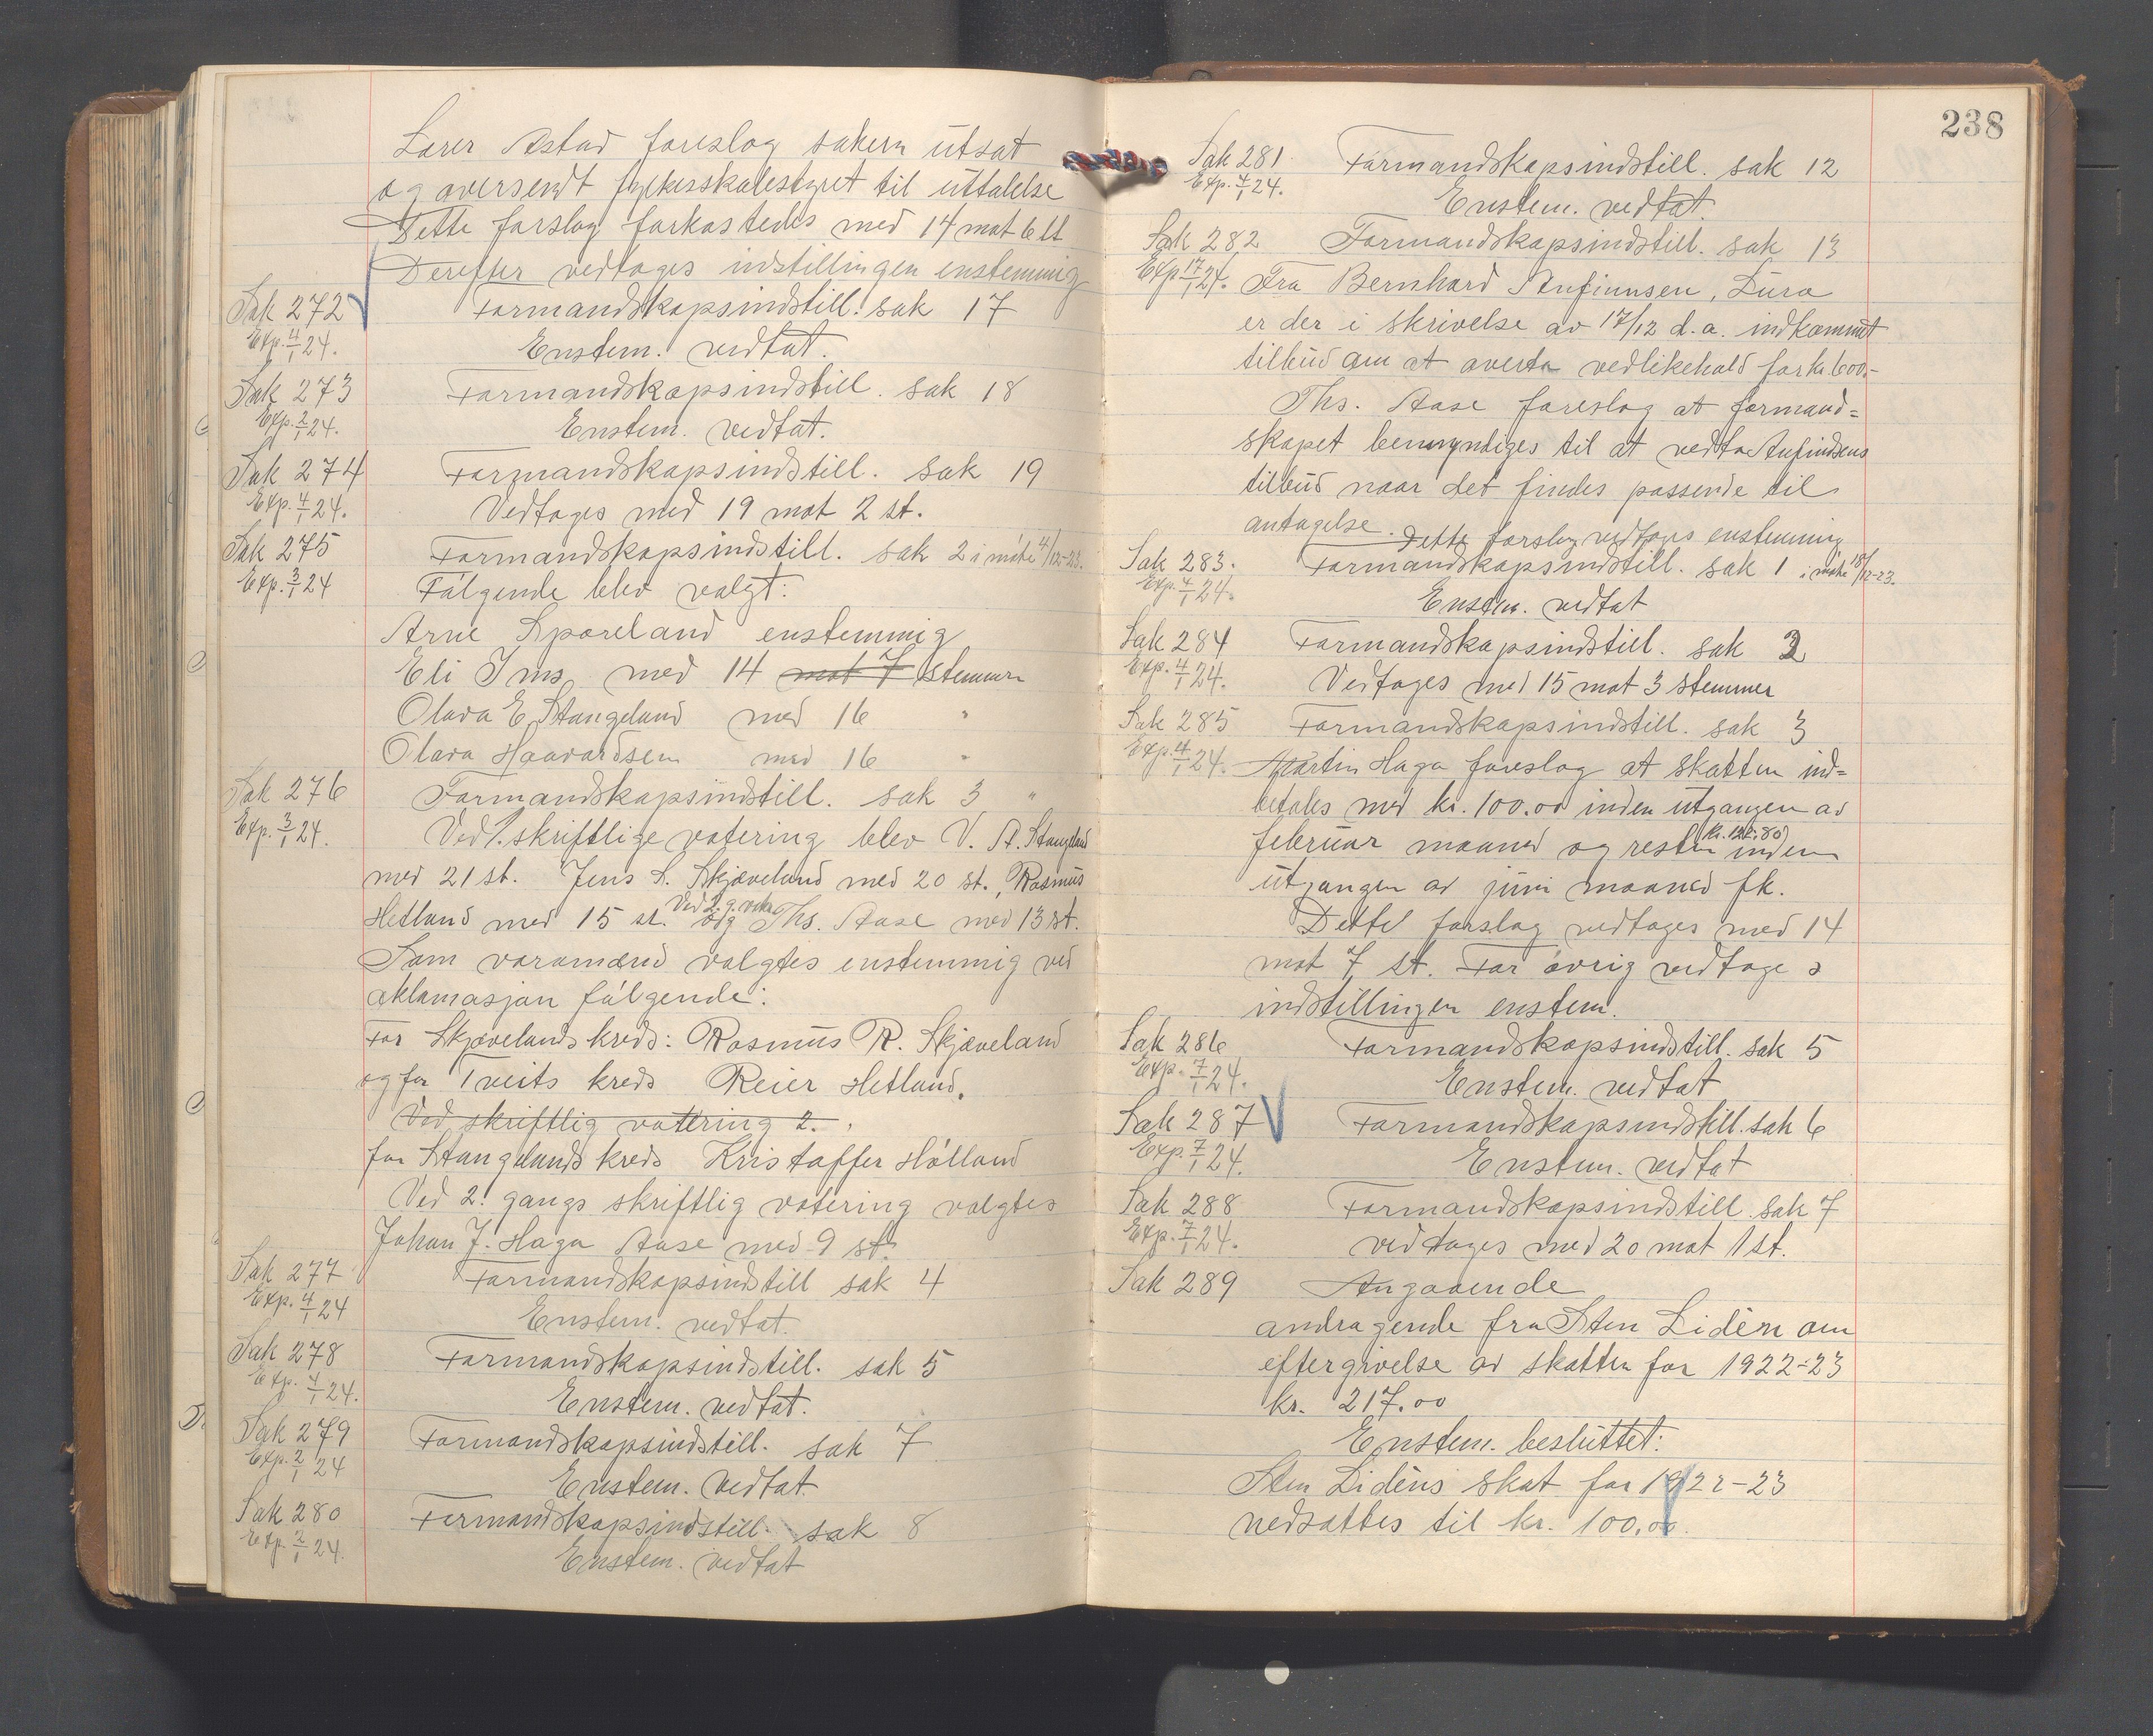 Lærer Østad foreslog saken utsat
og oversendt fylkesskolestyret til uttalelse
Dette forslag forkastedes med 14 mot 6 st
Derefter vedtages indstillingen enstemmig
Sak 272 Formandskapsindstill. sak 17
Exp. 4/1 24. Enstem. vedtat.
Sak 273 Formandskapsindstill. sak 18
Exp. 2/1 24. Enstem. vedtat.
Sak 274 Formandskapsindstill. sak 19
Exp. 4/1 24. Vedtages med 19 mot 2 st.
Sak 275 Formandskapsindstill. sak 2 i møte 4/12-23.
Exp. 3/1 24 Følgende blev valgt:
Arne Sporeland enstemmig
Eli Ims med 14 mot 7 stemmer
Olava E. Stangeland med 16 "
Olava Haavardsen med 16 "
Sak 276 Formandskapsindstill. sak 3 "
Exp. 3/1 24. Ved 1. skriftlige votering blev V. A. Stangeland
med 21 st. Jens S. Skjæveland med 20 st., Rasmus
Hetland med 15 st. Ved 2. g. vot. og Ths. Aase med 13 st.
Som varamænd valgtes enstemmig ved
aklamasjon følgende:
For Skjævelands kreds: Rasmus R. Skjæveland
og for Tveits kreds Reier Hetland.
Ved skriftlig votering 2.
for Stangelands kreds Kristoffer Hølland
Ved 2. gangs skriftlig votering valgtes
Johan J. Haga Aase med 9 st.
Sak 277 Formandskapsindstill sak 4
Exp. 4/1 24 Enstem. vedtat.
Sak 278 Formandskapsindstill. sak 5
Exp. 4/1 24. Enstem. vedtat.
Sak 279 Formandskapsindstill. sak 7
Exp. 2/1 24 Enstem. vedtat.
Sak 280 Formandskapsindstill. sak 8
Exp. 2/1 24. Enstem. vedtat
238
Sak 281. Formandskapsindstill. sak 12
Exp. 4/1 24. Enstem. vedtat.
Sak 282 Formandskapsindstill. sak 13
Exp 17/1 24. Fra Bernhard Anfinnsen, Lura
er der i skrivelse av 17/12 d.a. indkommet
tilbud om at overta vedlikehold for kr. 600.-
Ths. Aase foreslog at formand=
skapet bemyndiges til at vedta Anfindsens
tilbud naar det findes passende til
antagelse. Dette forslag vedtages enstemmig
Sak 283. Formandskapsindstill. sak 1 i møte 18/12-23.
Exp. 4/1 24. Enstem. vedtat
Sak 284 Formandskapsindstill. sak 2
Exp. 4/1 24. Vedtages med 15 mot 3 stemmer
Sak 285 Formandskapsindstill. sak 3
Exp. 4/1 24. Martin Haga foreslog at skatten ind=
betales med kr. 100.00 inden utgangen av
februar maaned og resten kr. 122.80 inden
utgangen av juni maaned fk.
Dette forslag vedtages med 14
mot 7 st. For øvrig vedtages
indstillingen enstem.
Sak 286 Formandskapsindstill. sak 5
Exp. 7/1 24. Enstem. vedtat
Sak 287 Formandskapsindstill. sak 6
Exp. 7/1 24. Enstem. vedtat
Sak 288 Formandskapsindstill. sak 7
Exp. 7/1 24. vedtages med 20 mot 1 st.
Sak 289 Angaaende
andragende fra Sten Lidén om
eftergivelse av skatten for 1922-23
kr. 217.00
Enstem. besluttet:
Sten Lidéns skat for 1922-23
nedsattes til kr. 100.00.